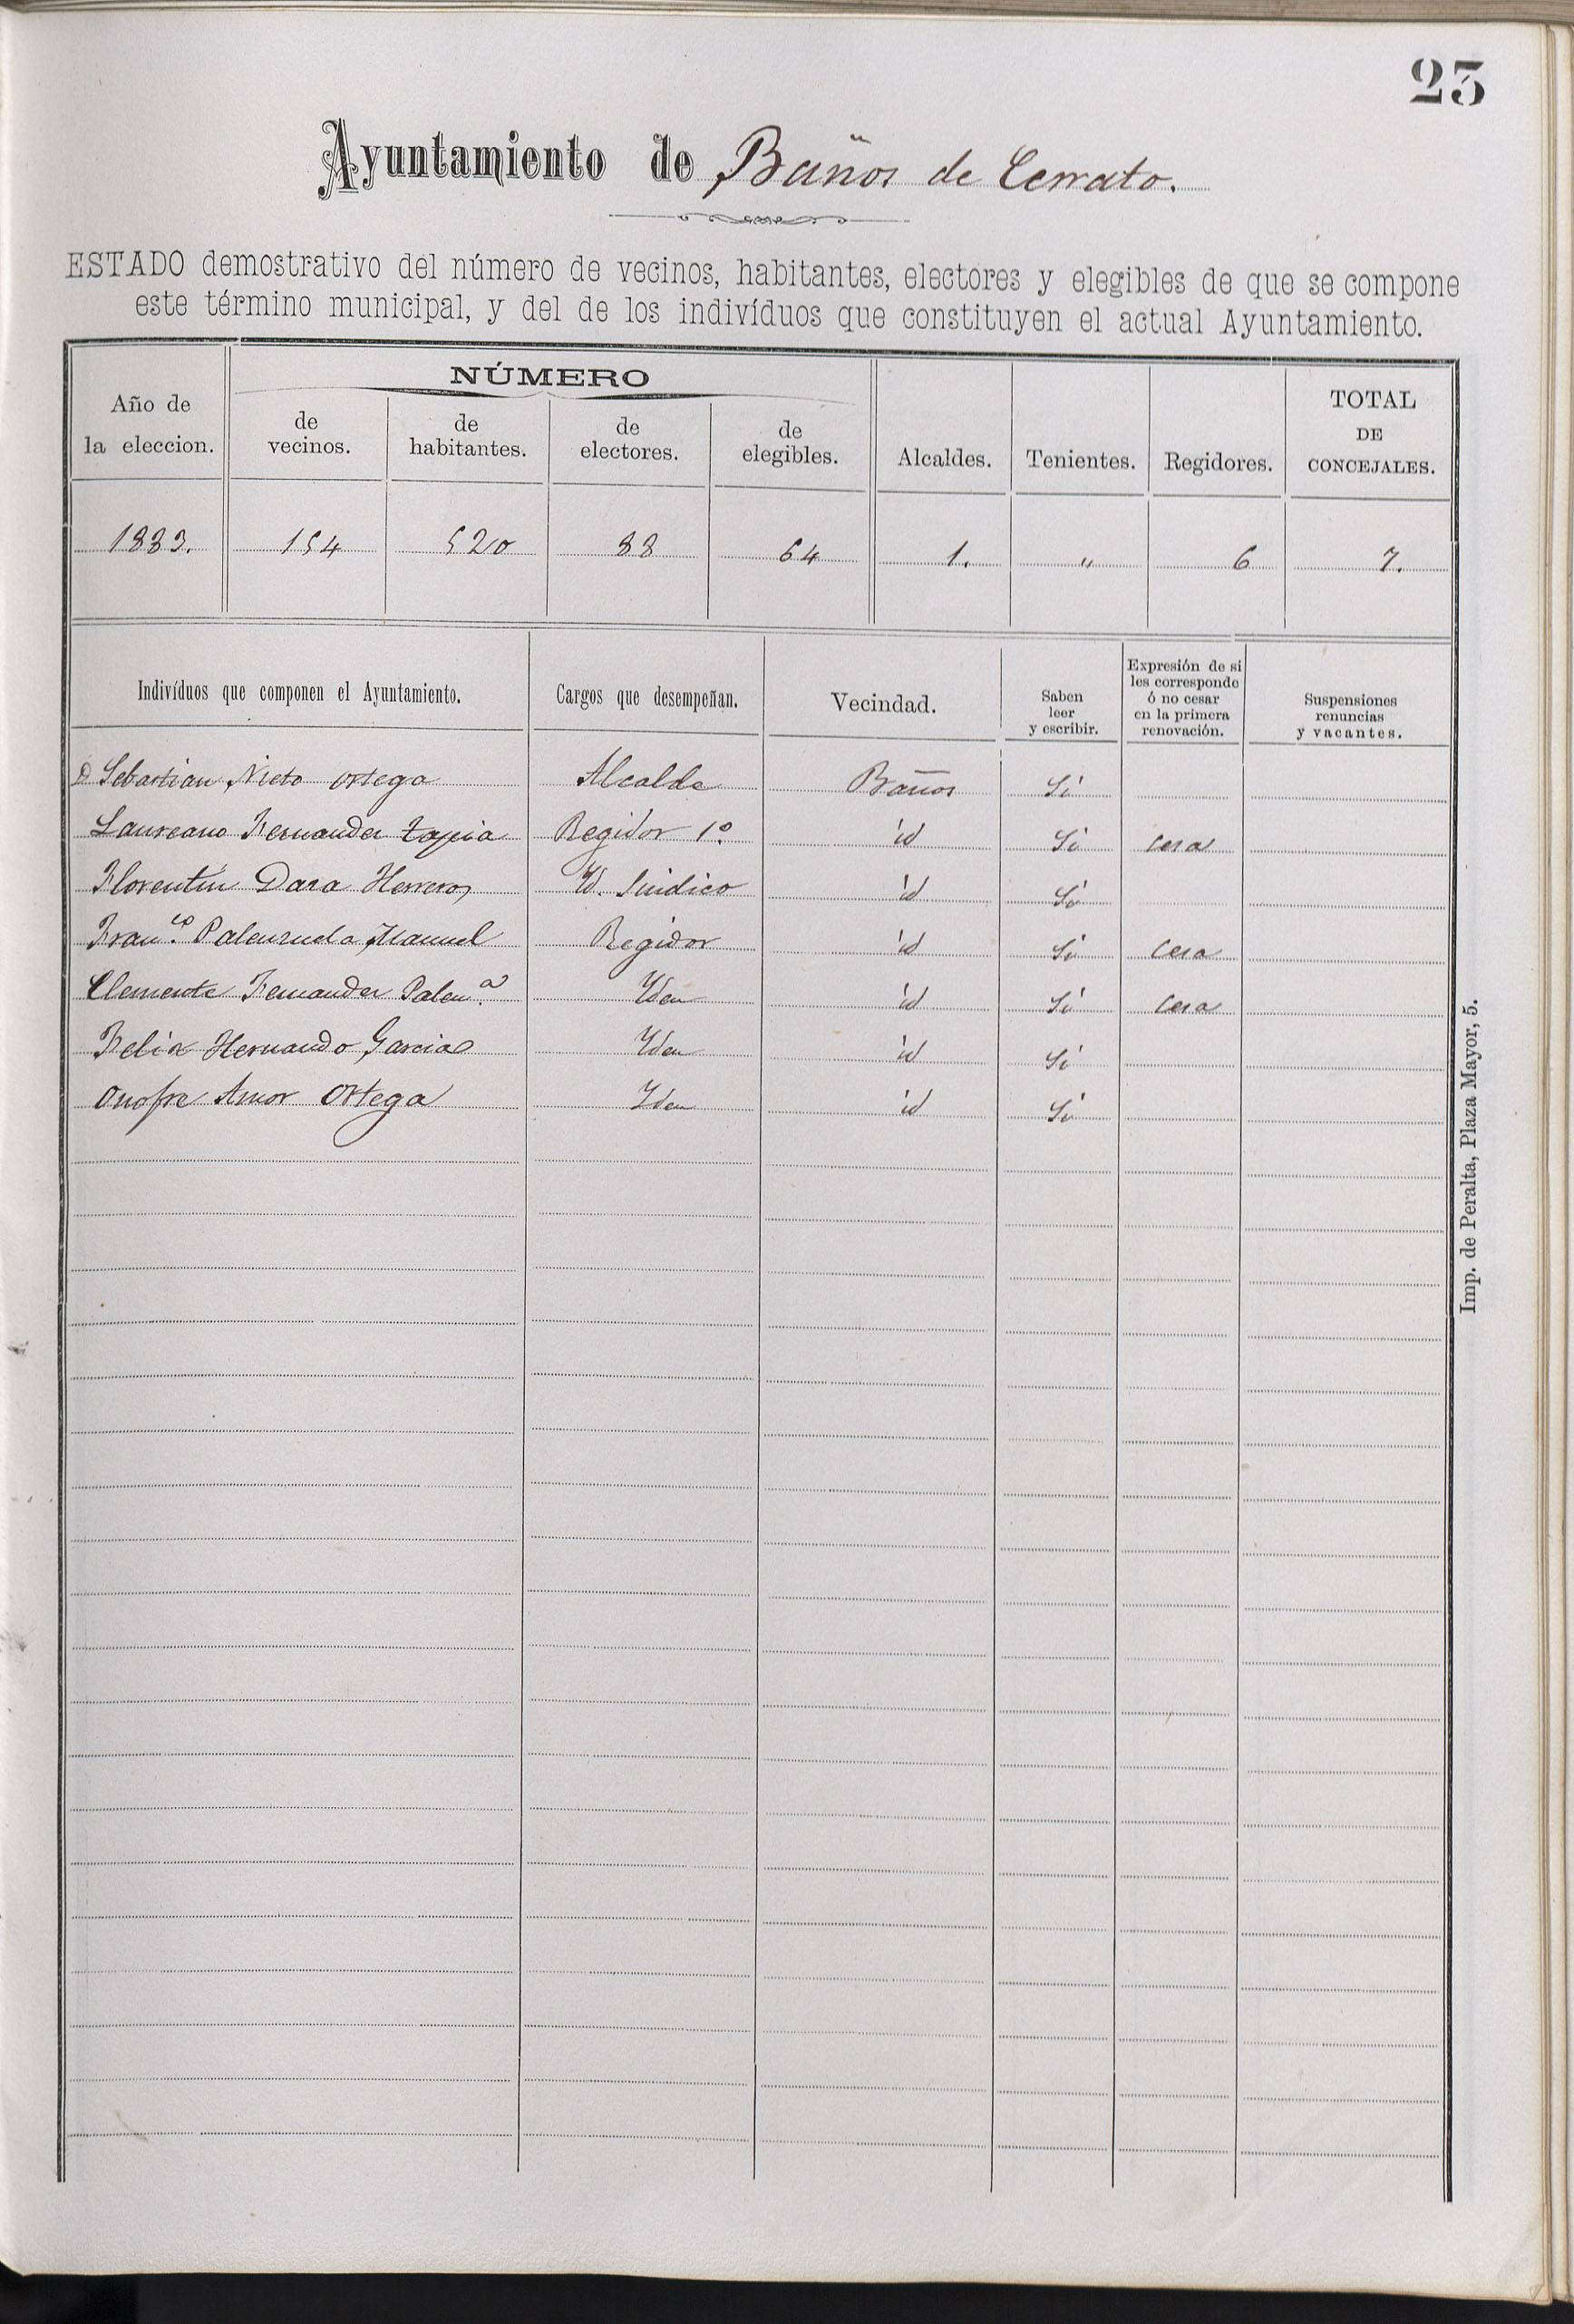 23
Ayuntamiento de Baños de Cerrato.
ESTADO demostrativo del número de vecinos, habitantes, electores y elegibles de que se compone
este término municipal, y del de los indivíduos que constituyen el actual Ayuntamiento.
Año de la eleccion. NÚMERO de vecinos. de habitantes. de electores. de elegibles. Alcaldes. Tenientes. Regidores. TOTAL DE CONCEJALES.
1883. 154 520 88 64 1. " 6 7.
Indivíduos que componen el Ayuntamiento. Cargos que desempeñan. Vecindad. Saben leer y escribir. Expresión de si les corresponde ó no cesar en la primera renovación. Suspensiones renuncias y vacantes.
D Sebastian Nieto Ortega Alcalde Baños Si
Laureano Fernandez Tapia Regidor 1º. id Si cesa
Florentin Daza Herreros Id. Sindico id Si
Franco. Palenzuela Manuel Regidor id Si cesa
Clemente Fernandez Palena. Iden id Si cesa
Felix Hernando Garcia Iden id Si
Onofre Amor Ortega Iden id Si
Imp. de Peralta, Plaza Mayor, 5.